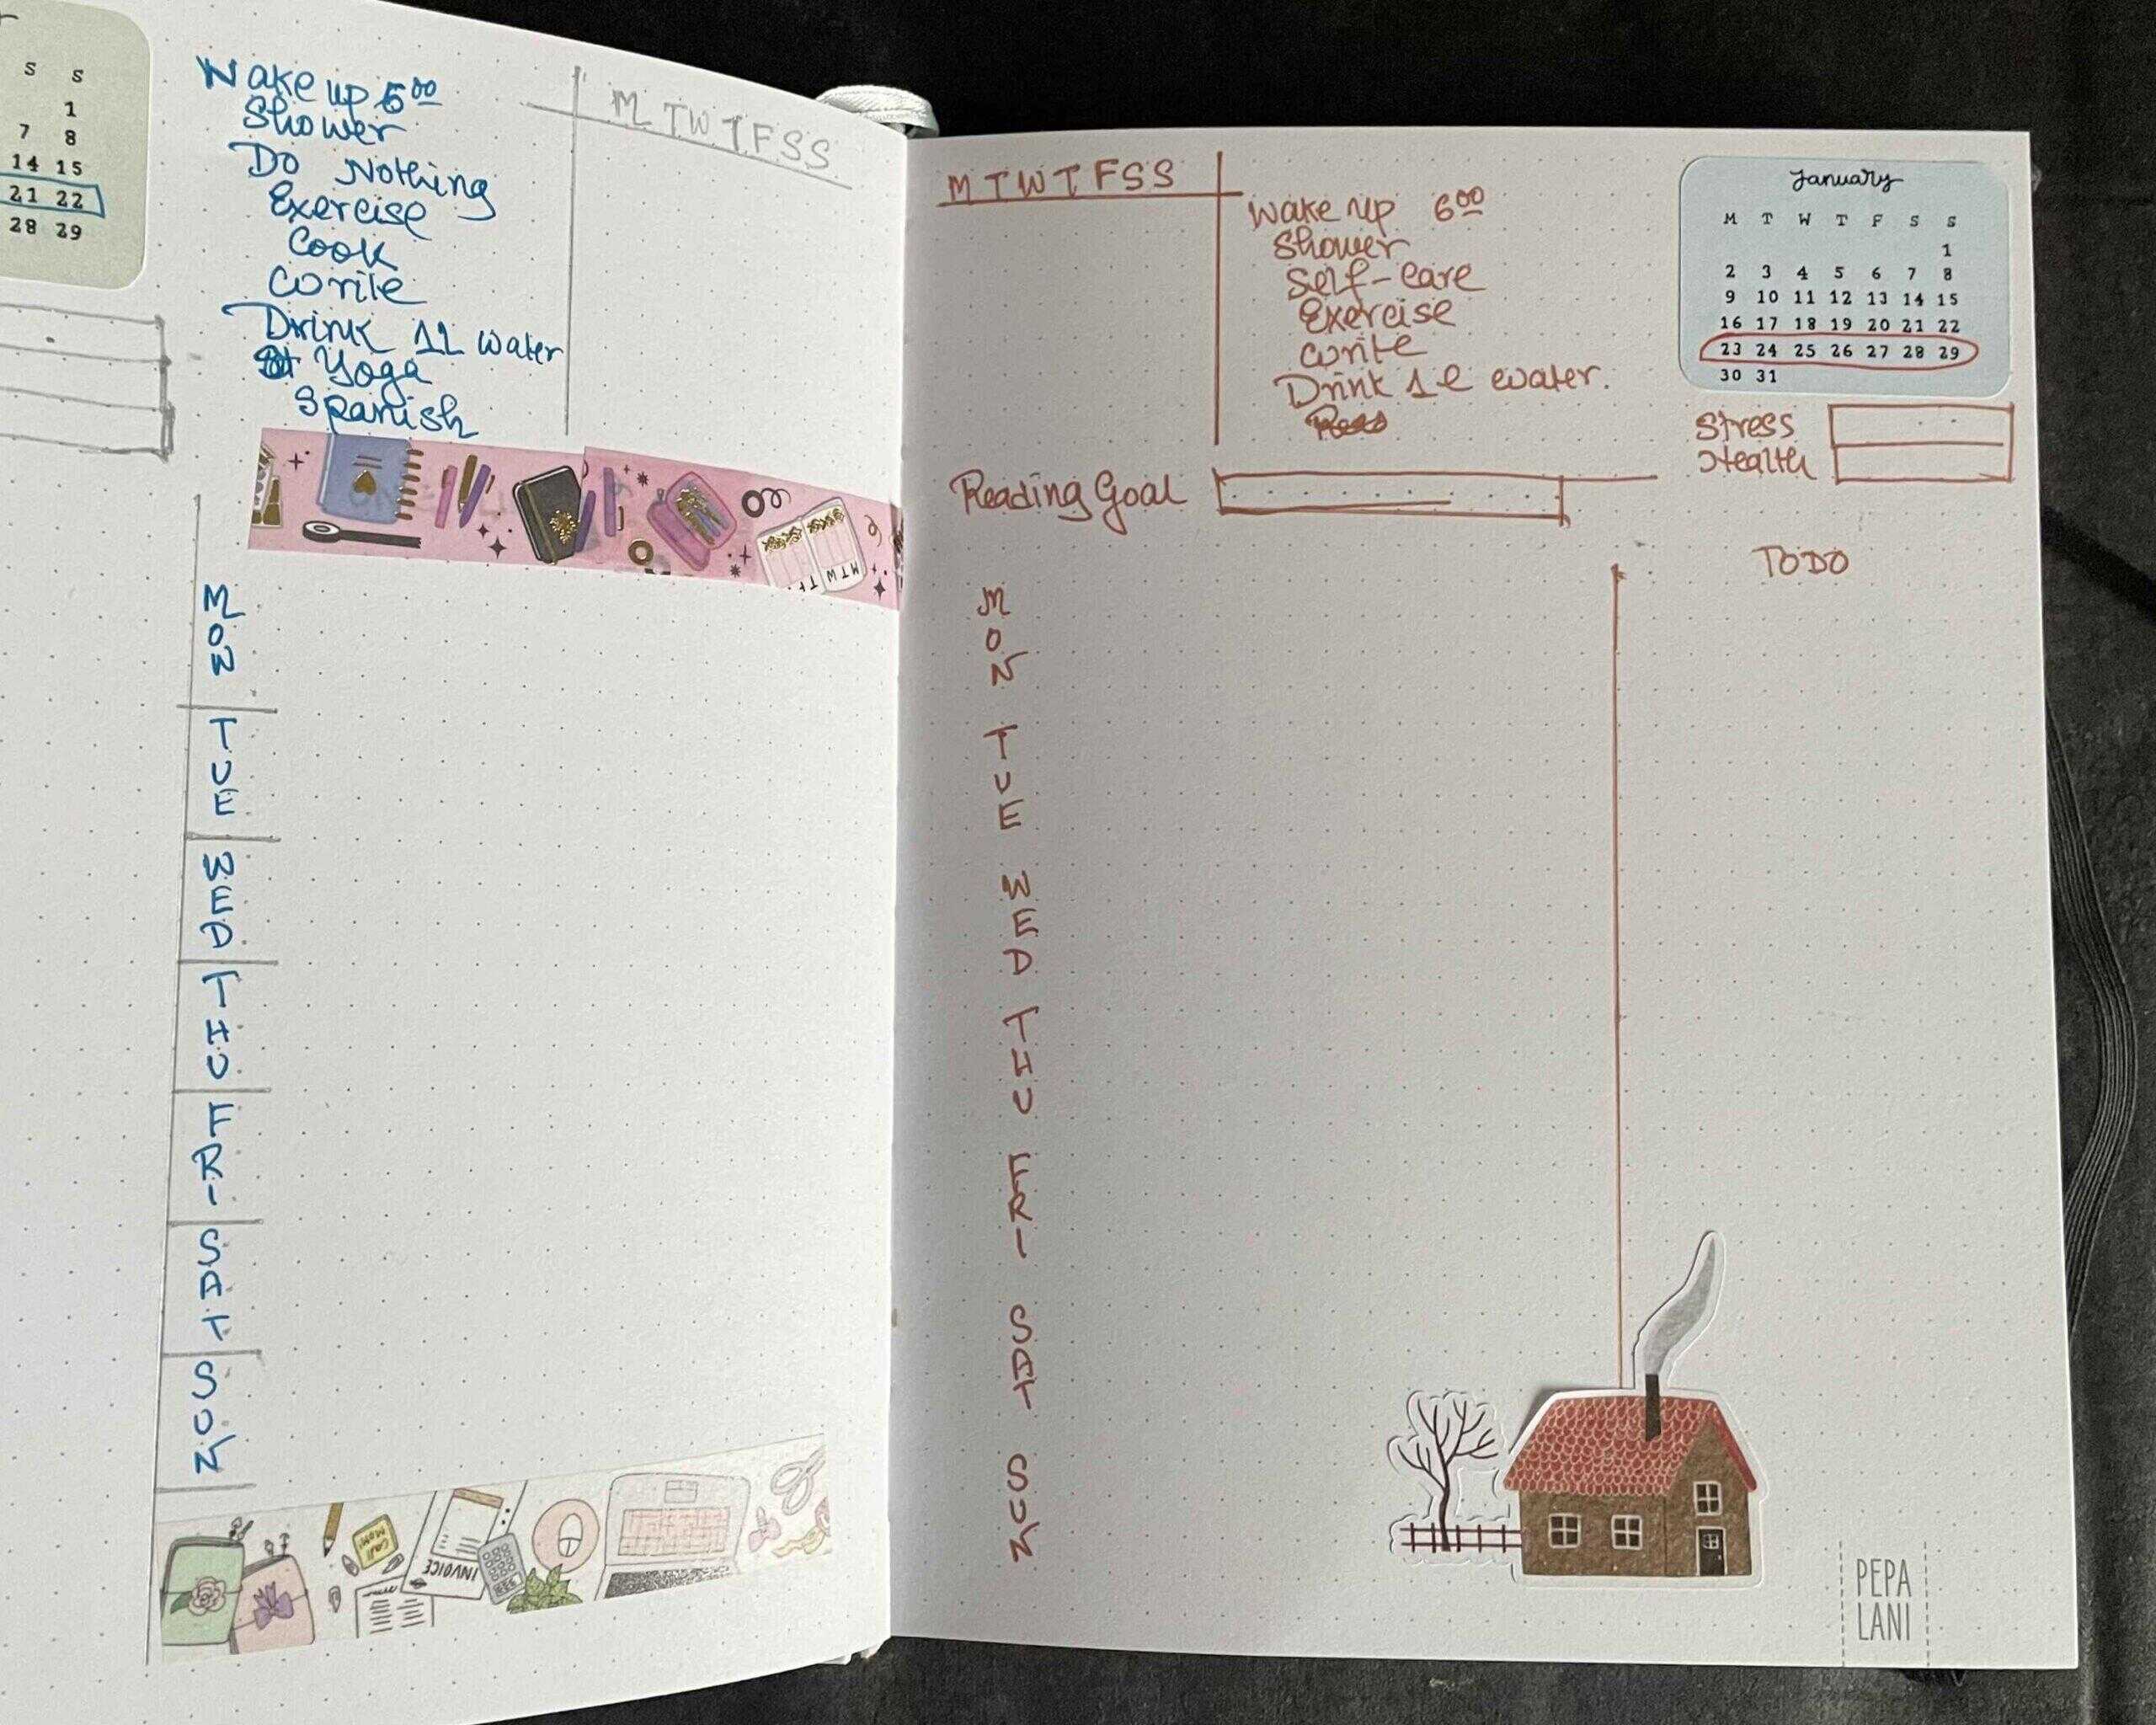 S S
1
7 8
14 15
21 22
28 29
Wake up 6 00
Shower
Do Nothing
Exercise
Cook
Write
Drink 1L water
Yoga
Spanish
M T W T F S S
M T W T
MON
TUE
WED
THU
FRI
SAT
SUN
call mom!
INVOICE
M T W T F S S
Wake up 6 00
Shower
Self-care
Exercise
Write
Drink 1 l water.
January
M T W T F S S
1
2 3 4 5 6 7 8
9 10 11 12 13 14 15
16 17 18 19 20 21 22
23 24 25 26 27 28 29
30 31
Stress
Health
Reading Goal
TODO
MON
TUE
WED
THU
FRI
SAT
SUN
PEPA
LANI